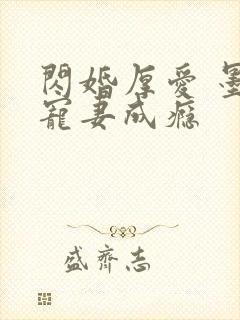 閃婚厚愛 墨
寵妻成癮
盛齊志